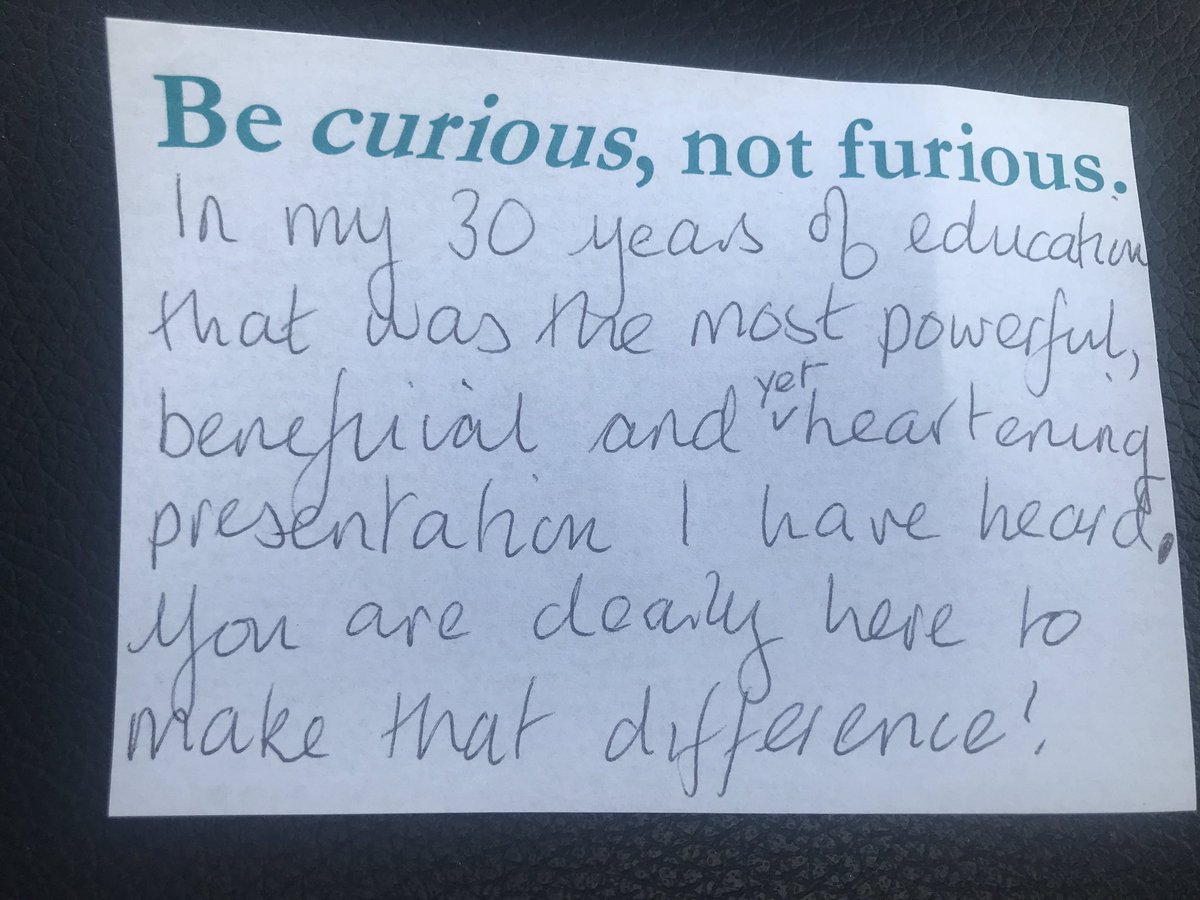 Be curious, not furious.
In my 30 years of education
that was the most powerful,
beneficial and yet heartening
presentation I have heard.
You are clearly here to
make that difference!